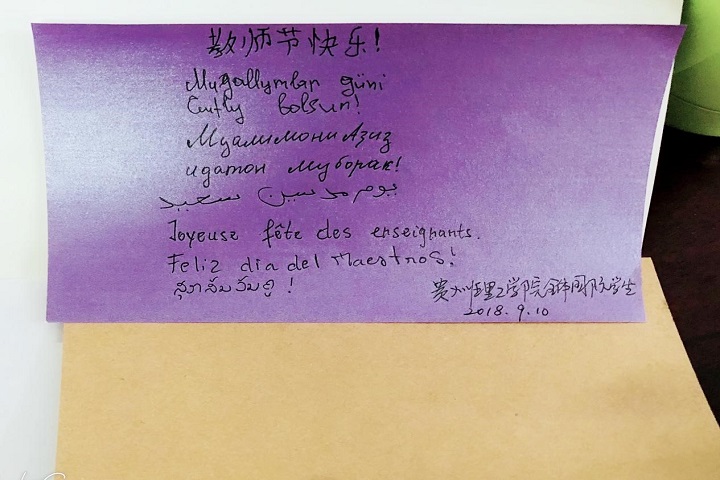 教师节快乐!
Mugallymlar güni
Cutly bolsun!
Муалимони Азиз
идатон муборак!
يوم مدرسين سعيد
Joyeuse fête des enseignants.
Feliz dia del Maestros!
ສຸກສັນວັນຄູ !
贵州理工学院全韩国院学生
2018.9.10